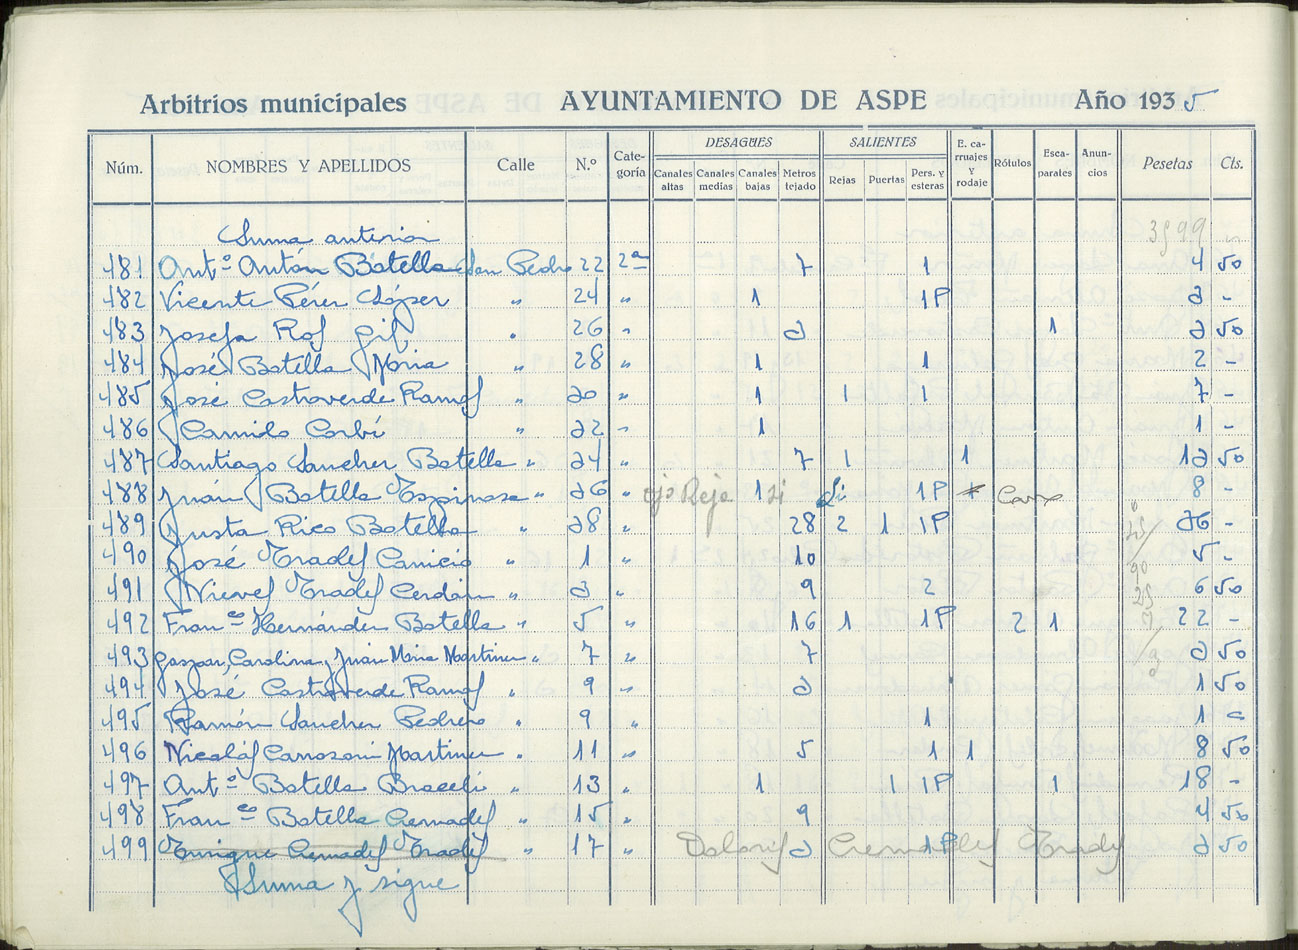 Arbitrios municipales AYUNTAMIENTO DE ASPE Año 1935
Núm. NOMBRES Y APELLIDOS Calle N.º Cate-goría DESAGUES SALIENTES E. ca-rruajes y rodaje Rótulos Esca-parates Anun-cios Pesetas Cts.
Canales altas Canales medias Canales bajas Metros tejado Rejas Puertas Pers. y esteras
Suma anterior 3599
481 Antº Antón Botella San Pedro 22 2ª 7 1 4 50
482 Vicente Pérez López " 24 " 1 1P 2 -
483 Josefa Roj Gil " 26 " 2 1 2 50
484 José Botella Moria " 28 " 1 1 2 -
485 José Castroverde Ramos " 20 " 1 1 1 7 -
486 Camilo Corbí " 22 " 1 1 -
487 Santiago Sancher Botella " 24 " 7 1 1 12 50
488 Juán Botella Espinosa " 26 " ojo Reja 1 si 1P 8 -
489 Justa Rico Botella " 28 " 28 2 1 1P 26 -
490 José Cañicio " 1 " 10 5 -
491 Nieves Cerdán " 3 " 9 2 6 50
492 Franco Hernánder Botella " 5 " 16 1 1P 2 1 22 -
493 Gaspar, Carolina, Juan Miria Martiner " 7 " 7 2 50
494 José Castroverde Ramos " 9 " 2 1 50
495 Ramón Sancher Pedrero " 9 " 1 1 -
496 Nicolás Martiner " 11 " 5 1 1 8 50
497 Antº Botella Braceli " 13 " 1 1 1P 1 18 -
498 Franco Botella Cremades " 15 " 9 4 50
499 Enrique Cremades " 17 " Dolores 2 Cremades 1P 2 50
Suma y sigue